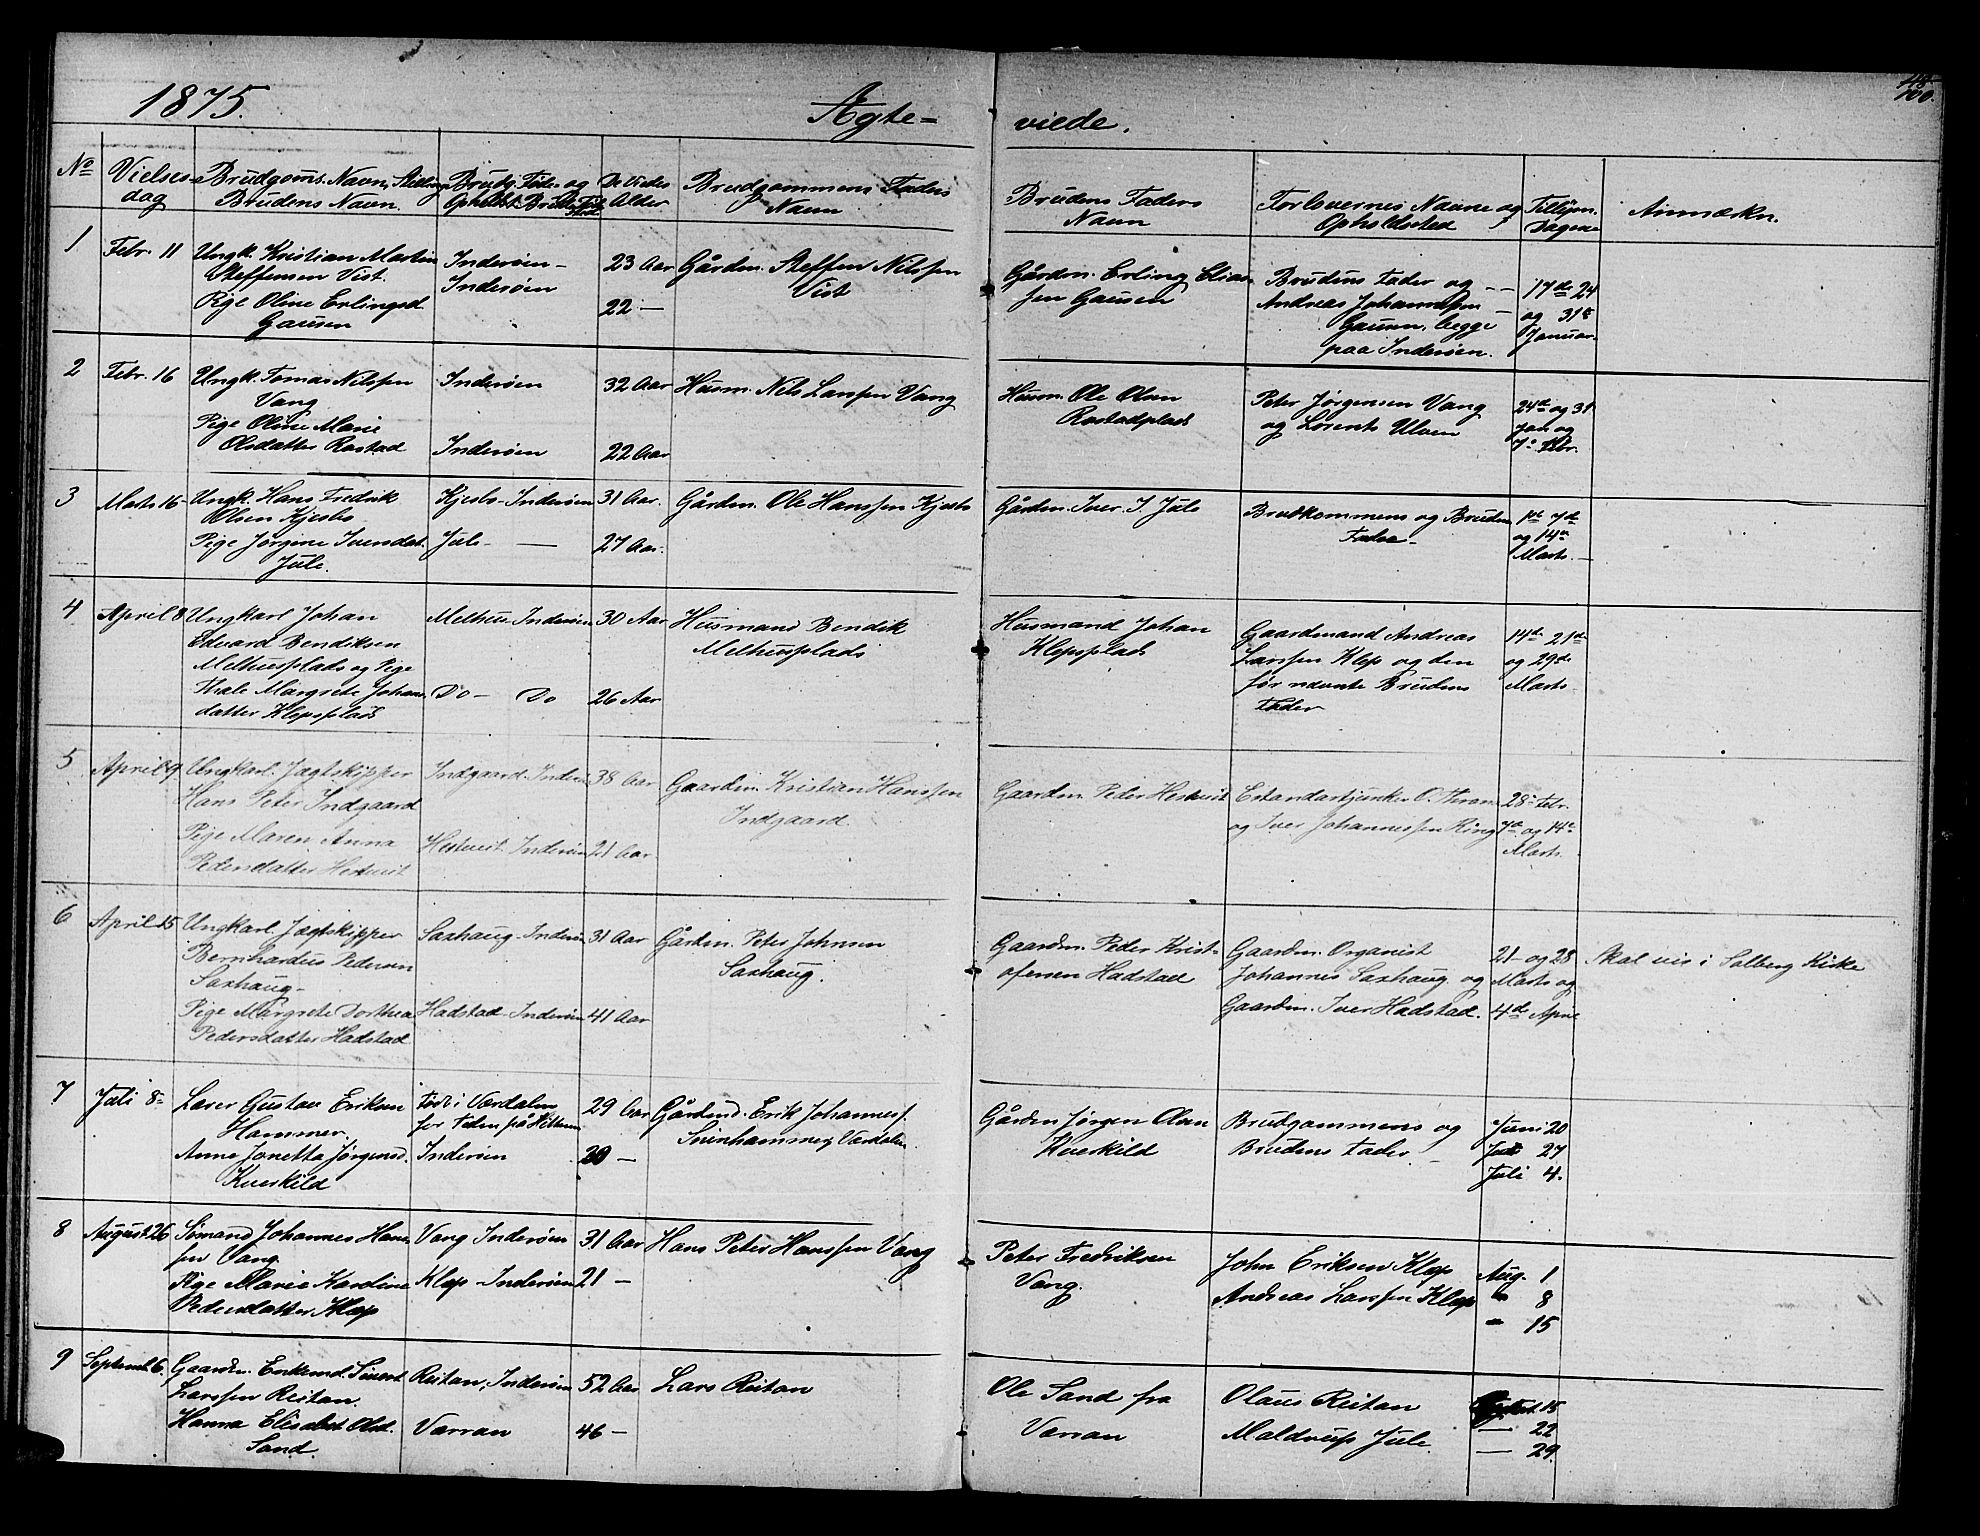 1875.
Ægte-
viede.
100.
No
Vielses-
dag
Brudgoms. Navn, Stilling
Brudens Navn.
Brudg. Føde- og
De Viedes
Alder
Brudgommens Faders
Navn
Brudens Faders
Navn
Forlovernes Navne og
Opholdsted
Tillysn.
Dagene
Anmærkn.
1
Febr. 11
Ungk. Kristian Martin
Steffensen Vist.
Pige Oline Erlingsd.
Gausen
Inderøen-
Inderøen
23 Aar
22 —
Gårdm. Steffen Nilssen
Vist
Gårdm. Erling Elias-
sen Gausen
Brudens Fader og --
Andreas Johannessen —
Gausen, begge
paa Inderøen.
17de 24
og 31te
Januar.
2
Febr. 16
Ungk. Tomas Nilssen
Vang
Pige Oline Marie
Olsdatter Rostad
Inderøen
Inderøen
32 Aar
22 Aar
Husm. Nils Larssen Vang
Husm. Ole Olsen
Rostadplads
Peter Jørgensen Vang
og Lorents Ulven
24de og 31
Jan og
7de Febr.
3
Marts 16
Ungk. Hans Fredrik
Olsen Kjesbo
Pige Jørgine Iversdat.
Jule.
Kjesbo- Inderøen
Jule- —
31 Aar.
27 Aar.
Gårdm. Ole Hanssen Kjesbo
Gårdm. Iver. I. Jule
Brudkommens og Brudens
Fader-
1de 7de
og 14de
Marts. —
4
April 8
Ungkarl Johan
Edvard Bendiksen
Melhusplads og Pige
Thale Margrete Johans
datter Klepsplads
Melhus- Inderøen
Do- Do
30 Aar
26 Aar
Husmand Bendik
Melhusplads
Husmand Johan
Klepsplads
Gaardmand Andreas
Larssen Klep og den
før nævnte Brudens
Fader
14de 21de
og 29de
Marts.
5
April 9
Ungkarl. Jægtskipper
Hans Peter Indgaard
Pige Maren Anna
Pedersdatter Hestvist
Indgaard. Inderøen
Hestvist. Inderøen
38 Aar
21 Aar
Gaardm. Kristian Hanssen
Indgaard.
Gaardm. Peder Hestvist
Estandartjunker O. Thrane
og Iver Johannessen Ring
28de Febr.
7de og 14de
Marts.
6
April 15
Ungkarl. Jægtskipper
Bernhardus Pedersen
Saxhaug-
Pige Margrete Dorthea
Pedersdatter Hadstad
Saxhaug- Inderøen
Hadstad- Inderøen
31 Aar
41 Aar
Gårdm. Peter Johnsen
Saxhaug.
Gaardm. Peder Krist-
ofersen Hadstad
Gaardm. Organist
Johannes Saxhaug og
Gaardm. Iver Hadstad.
21- og 28
Marts og
4de April
Skal vis i Salberg Kirke
7
Juli 8-
Lærer Gustav Eriksen
Hammer.
Anne Jonetta Jørgensd.
Kverkild
Født i Værdalen
Inderøen
29 Aar
20 —
Gårdmd. Erik Johannesf.
Sunhammer, Værdalen.
Gårdm Jørgen Olsen
Kverkild
Brudgommens og
Brudens Fader —
Juni 20
27
Juli 4.
8
August 26
Sømand Johannes Hans-
sen Vang.
Pige Marie Kardine
Pedersdatter Klep
Vang Inderøen
Klep- Inderøen
31 Aar
21 —
Hans Peter Hanssen Vang
Peter Fredriksen
Vang.
John Eriksen Klep
Andreas Larssen Klep
Aug. 1
" 8
" 15
9
Septemb. 6.
Gaardm. Enkemd. Sivert
Larssen Reitan.
Hanna Elisabet Olsd.
Sand.
Reitan, Inderøen
Værran
52 Aar
46 —
Lars Reitan
Ole Sand fra
Værran
Olaus Reitan
Maldrup Jule.
15
— 22
— 29